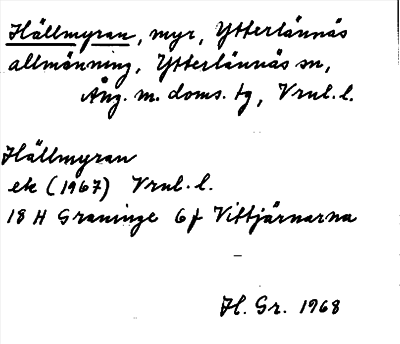 Hällmyran, myr, Ytterlännäs
allmänning, Ytterlännäs sn,
Ång. m. doms. tg, Vrnl. l.
Hällmyran
ek (1967) Vrnl. l.
18 H Graninge 6f Vittjärnarna
Hl. Gr. 1968